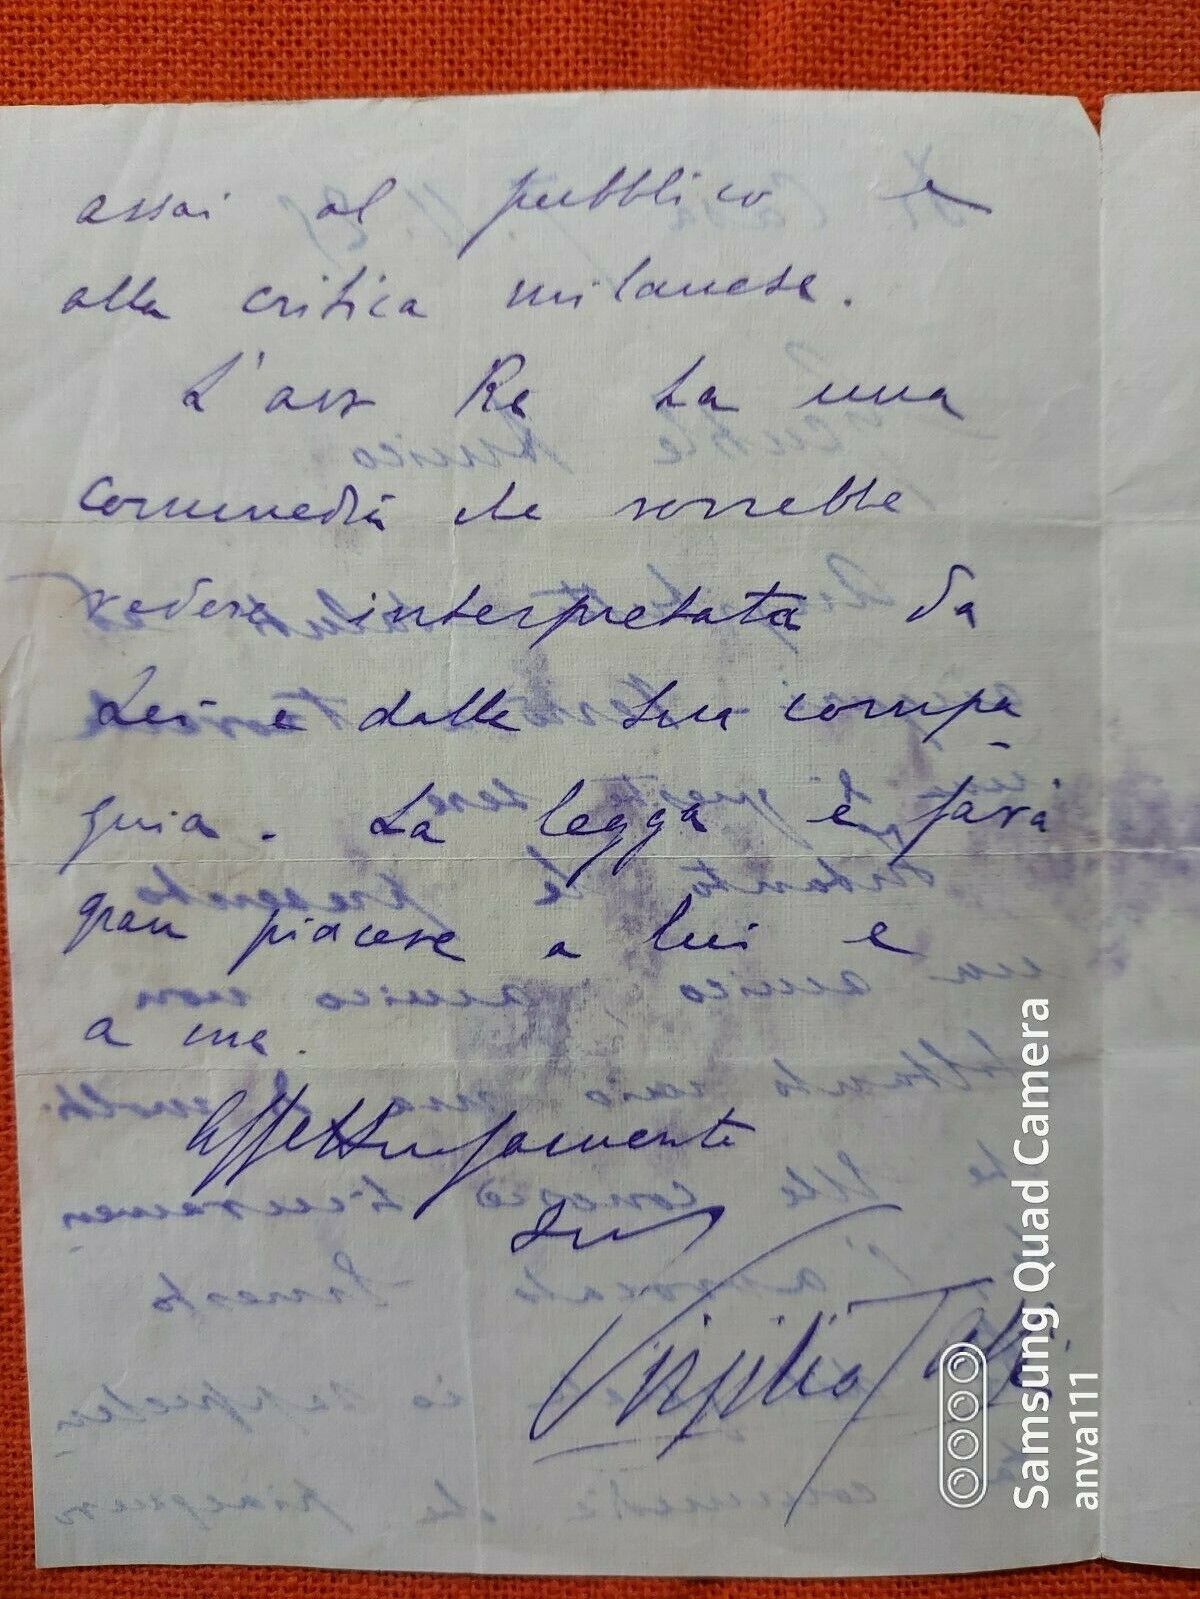 assai al pubblico e
alla critica milanese.
L'avv Re ha una
commedia che vorrebbe
vedere interpretata da
Lei e dalla sua compa-
gnia. La legga e farà
gran piacere a lui e
a me.
Affettuosamente
Suo
Virgilio Talli
Samsung Quad Camera
anva111